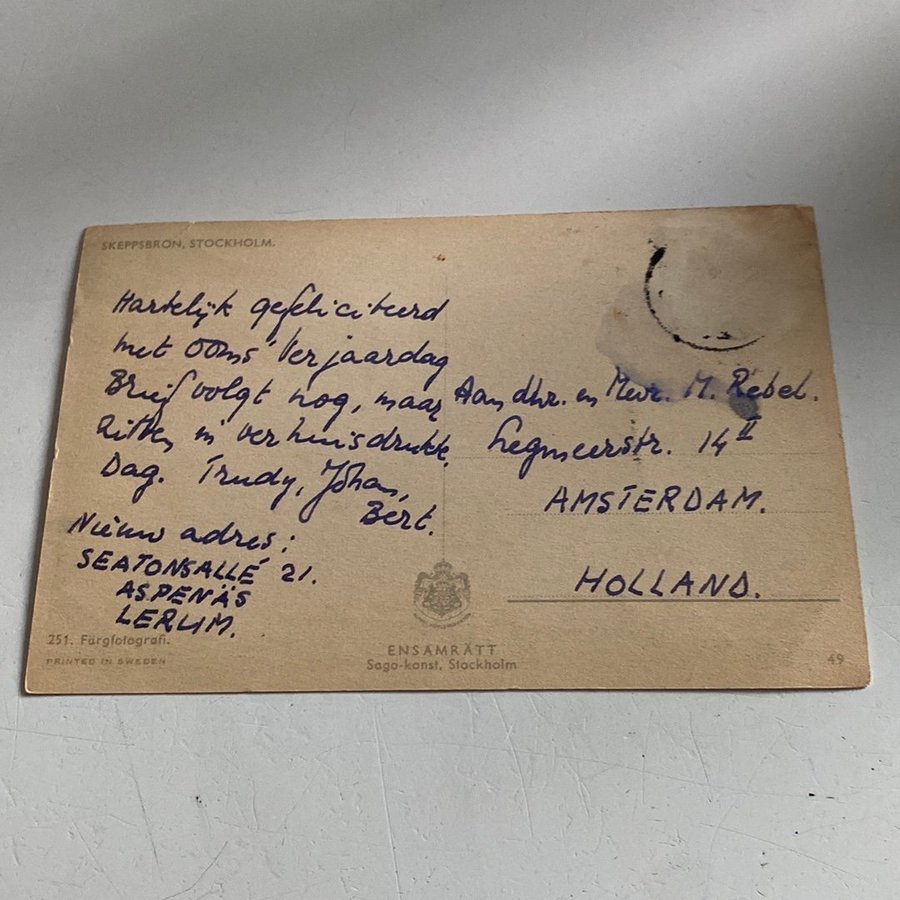 SKEPPSBRON, STOCKHOLM.
Hartelijk gefeliciteerd
met Ooms' Verjaardag
Brief volgt nog, maar
zitten in verhuisdrukte.
Dag. Trudy, Johan,
Bert.
Nieuw adres:
SEATONSALLÉ 21.
ASPENÄS
LERUM.
251. Färgfotografi.
PRINTED IN SWEDEN
Aan dhr. en Mevr. M. Rebel.
Legmeerstr. 14 II
AMSTERDAM.
HOLLAND.
ENSAMRÄTT
Sago-konst, Stockholm
49